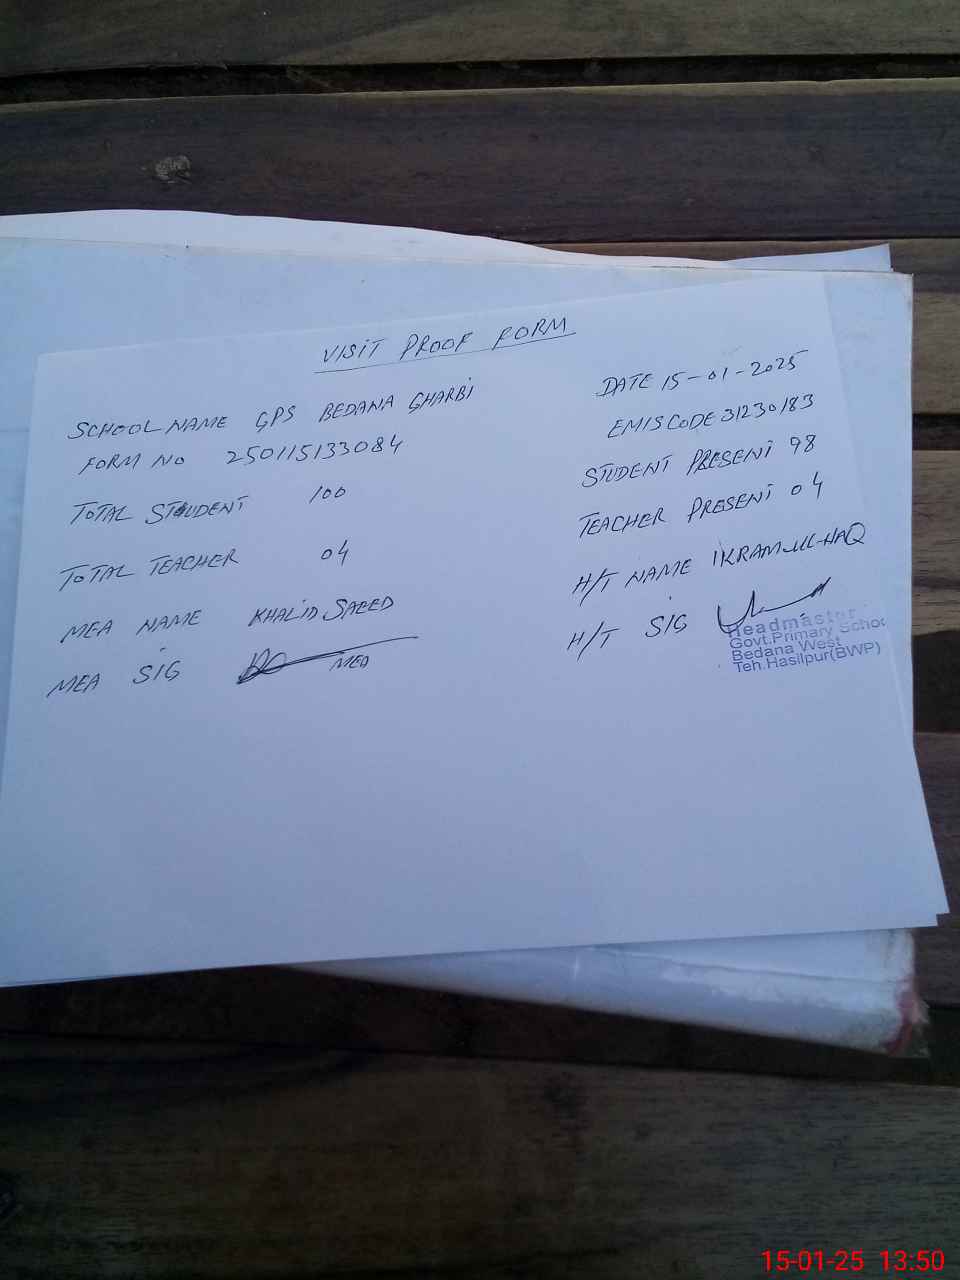 VISIT PROOF FORM
SCHOOL NAME GPS BEDANA GHARBI
DATE 15-01-2025
FORM NO 250115133084
EMIS CODE 31230183
TOTAL STUDENT 100
STUDENT PRESENT 98
TOTAL TEACHER 04
TEACHER PRESENT 04
MEA NAME KHALID SAEED
H/T NAME IKRAM-UL-HAQ
MEA SIG
H/T SIG
Headmaster
Govt.Primary School
Bedana West
Teh.Hasilpur(BWP)
15-01-25 13:50